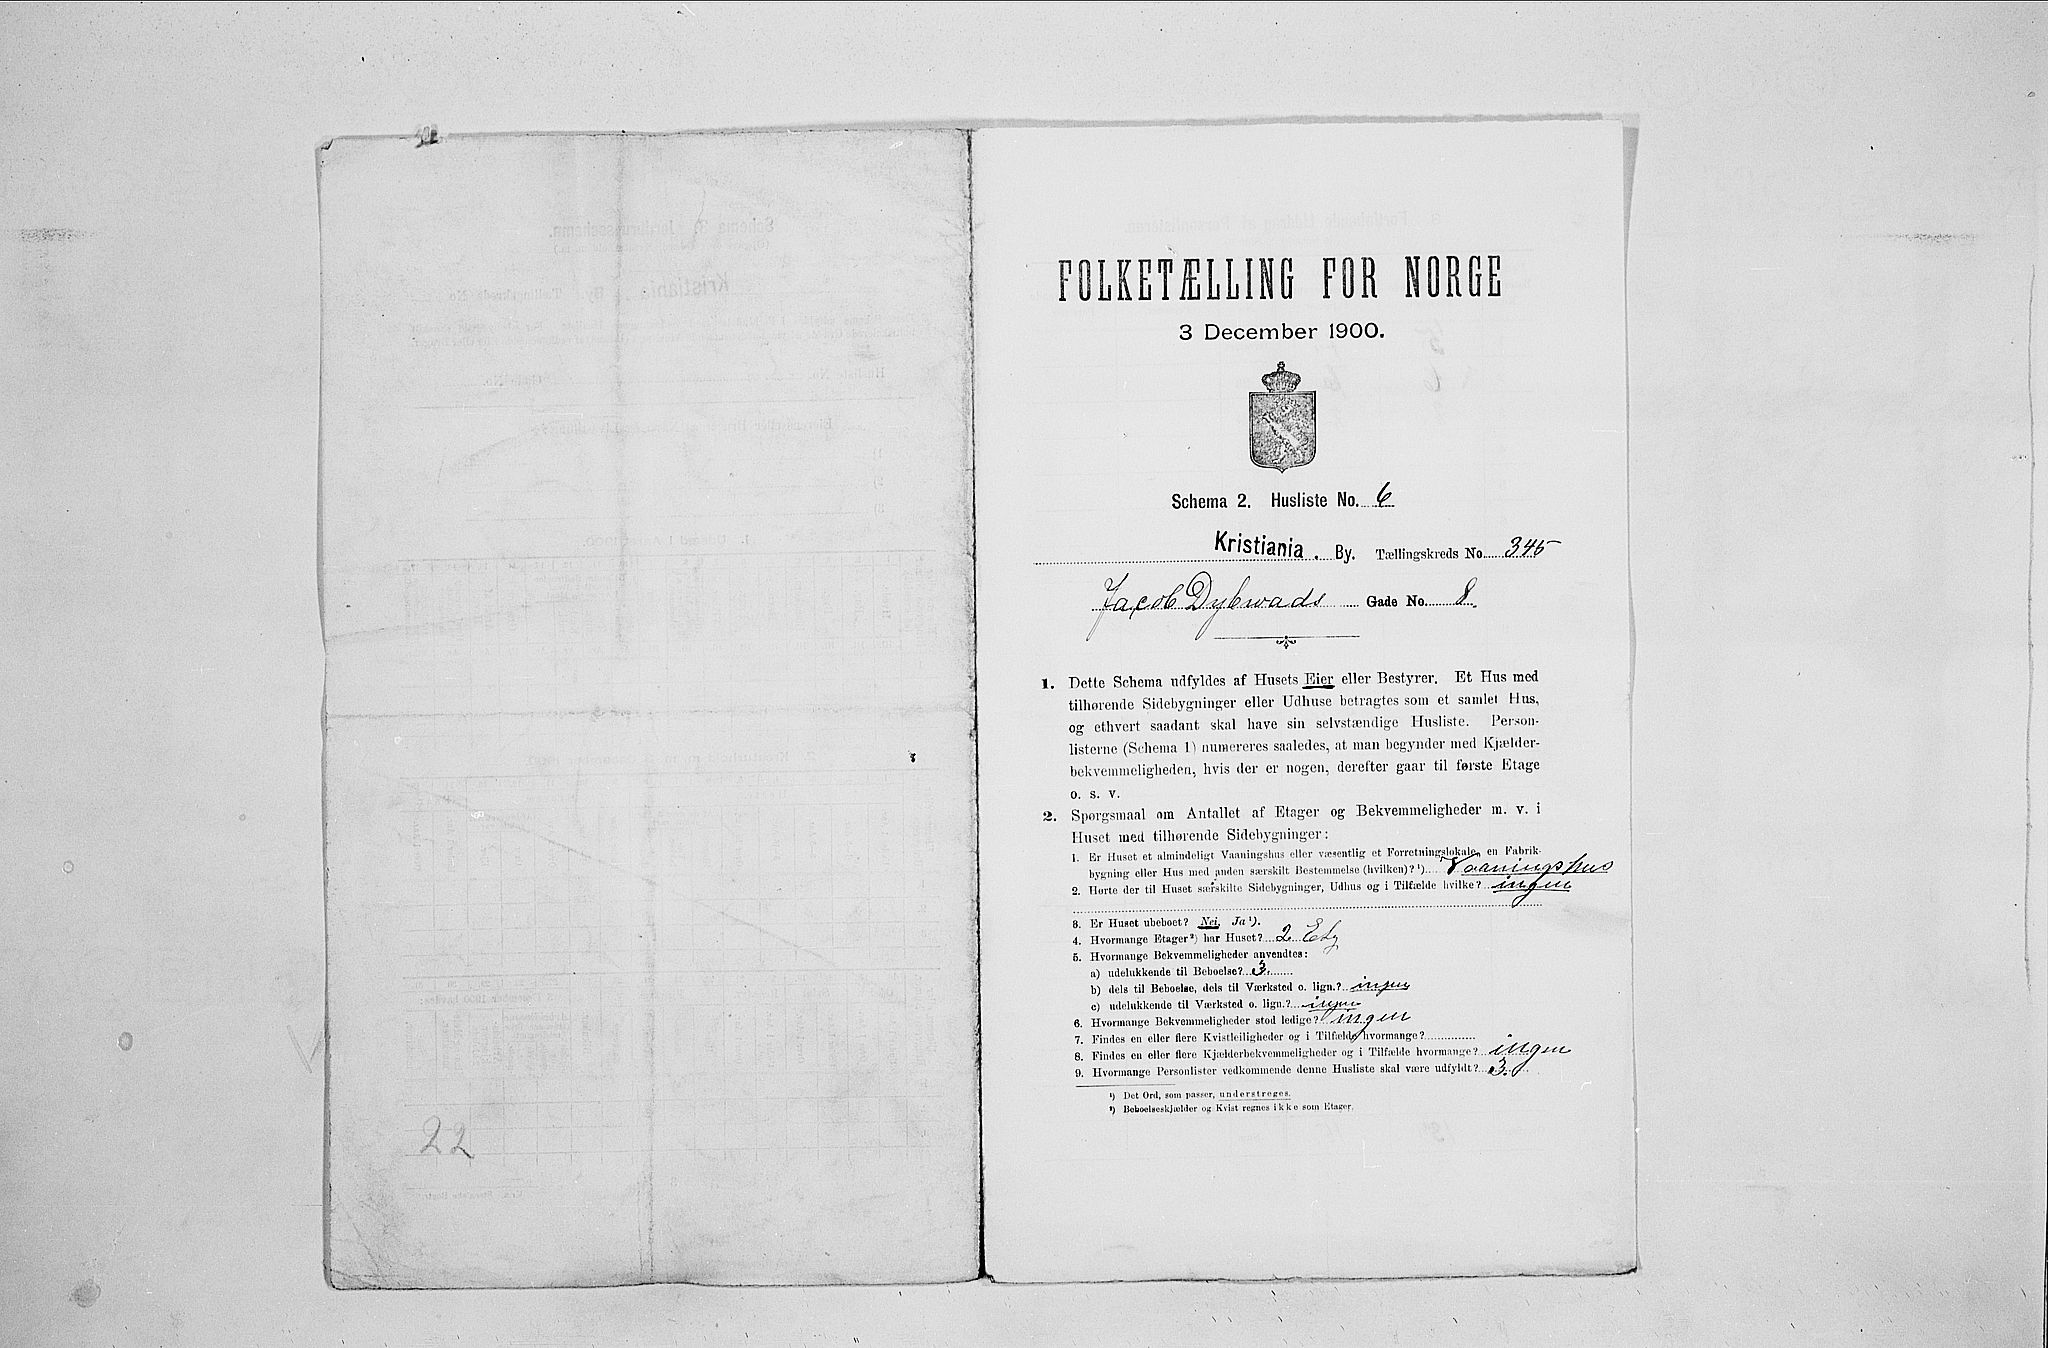 22
FOLKETÆLLING FOR NORGE
3 December 1900.
Schema 2. Husliste No. 6
Kristiania. By. Tællingskreds No. 345
Jacob Dybwads Gade No. 8.
1. Dette Schema udfyldes af Husets Eier eller Bestyrer. Et Hus med
tilhørende Sidebygninger eller Udhuse betragtes som et samlet Hus,
og ethvert saadant skal have sin selvstændige Husliste. Person-
listerne (Schema 1) numereres saaledes, at man begynder med Kjælder-
bekvemmeligheden, hvis der er nogen, derefter gaar til første Etage
o. s. v.
2. Spørgsmaal om Antallet af Etager og Bekvemmeligheder m. v. i
Huset med tilhørende Sidebygninger:
1. Er Huset et almindeligt Vaaningshus eller væsentlig et Forretningslokale, en Fabrik-
bygning eller Hus med anden særskilt Bestemmelse (hvilken)?¹) Vaaningshus
2. Hørte der til Huset særskilte Sidebygninger, Udhus og i Tilfælde hvilke? ingen
3. Er Huset ubeboet? Nei, Ja¹).
4. Hvormange Etager²) har Huset? 2 Etg
5. Hvormange Bekvemmeligheder anvendtes:
a) udelukkende til Beboelse? 3.
b) dels til Beboelse, dels til Værksted o. lign.? ingen
c) udelukkende til Værksted o. lign.? ingen
6. Hvormange Bekvemmeligheder stod ledige? ingen
7. Findes en eller flere Kvistleiligheder og i Tilfælde hvormange?
8. Findes en eller flere Kjælderbekvemmeligheder og i Tilfælde hvormange? ingen
9. Hvormange Personlister vedkommende denne Husliste skal være udfyldt? 3.
¹) Det Ord, som passer, understreges.
²) Beboelseskjælder og Kvist regnes ikke som Etager.